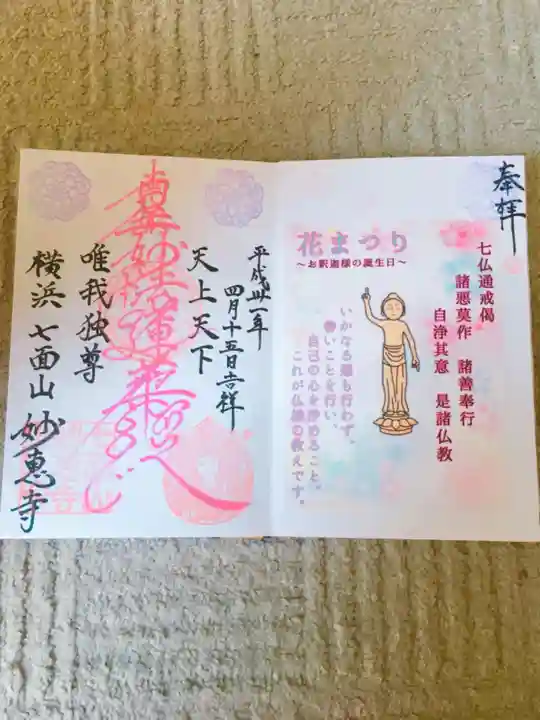 奉拝
七仏通戒偈
諸悪莫作 諸善奉行
自浄其意 是諸仏教
花まつり
~お釈迦様の誕生日~
いかなる悪も行わず、
善いことを行い、
自己の心を浄めること、
これが仏様の教えです。
平成卅一年
四月十五日吉祥
天上天下
唯我独尊
南無妙法蓮華経
横浜七面山妙恵寺